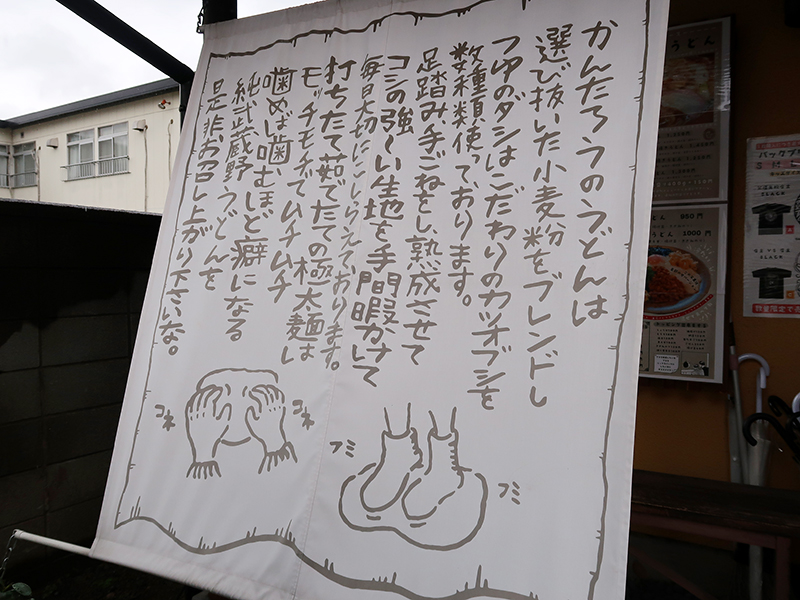 かんたろうのうどんは
選び抜いた小麦粉をブレンドし
つゆのダシはこだわりのカツオブシを
数種類使っております。
足踏み、手ごねをし、熟成させて
コシの強〜い生地を手間暇かけて
毎日大切にこしらえております。
打ちたて茹でたての極太麺は
モッチモチでムチムチ
噛めば噛むほど癖になる
純武蔵野うどんを
是非お召し上がり下さいな。
コネ
コネ
フミ
フミ
うどん
950円
うどん
1000円
数量限定で